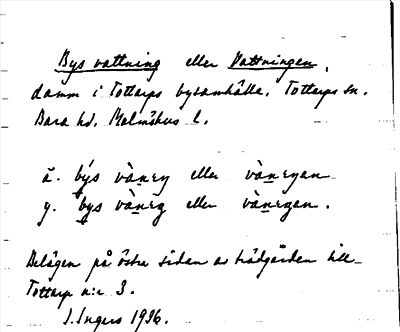 Bys vattning eller Vattningen,
damm i Tottarps bysamhälle. Tottarps sn.
Bara hd. Malmöhus l.
ä. býs vàṉeŋ eller vàṉeŋan
y. býs vàṉeŋ eller vàṉeŋan.
Belägen på östra sidan av trädgården till
Tottarp n:r 3.
I. Ingers 1936.